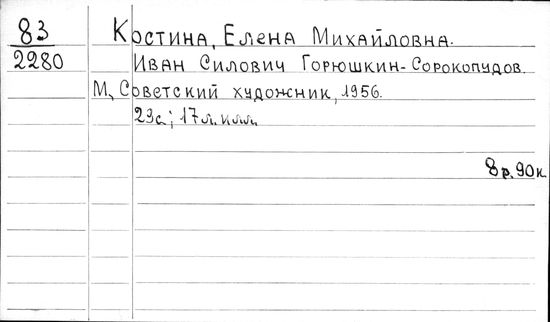 83 Костина, Елена Михайловна.
2280 Иван Силович Горюшкин-Сорокопудов.
М., Советский художник, 1956.
29с.; 17л. илл.
8р. 90к.